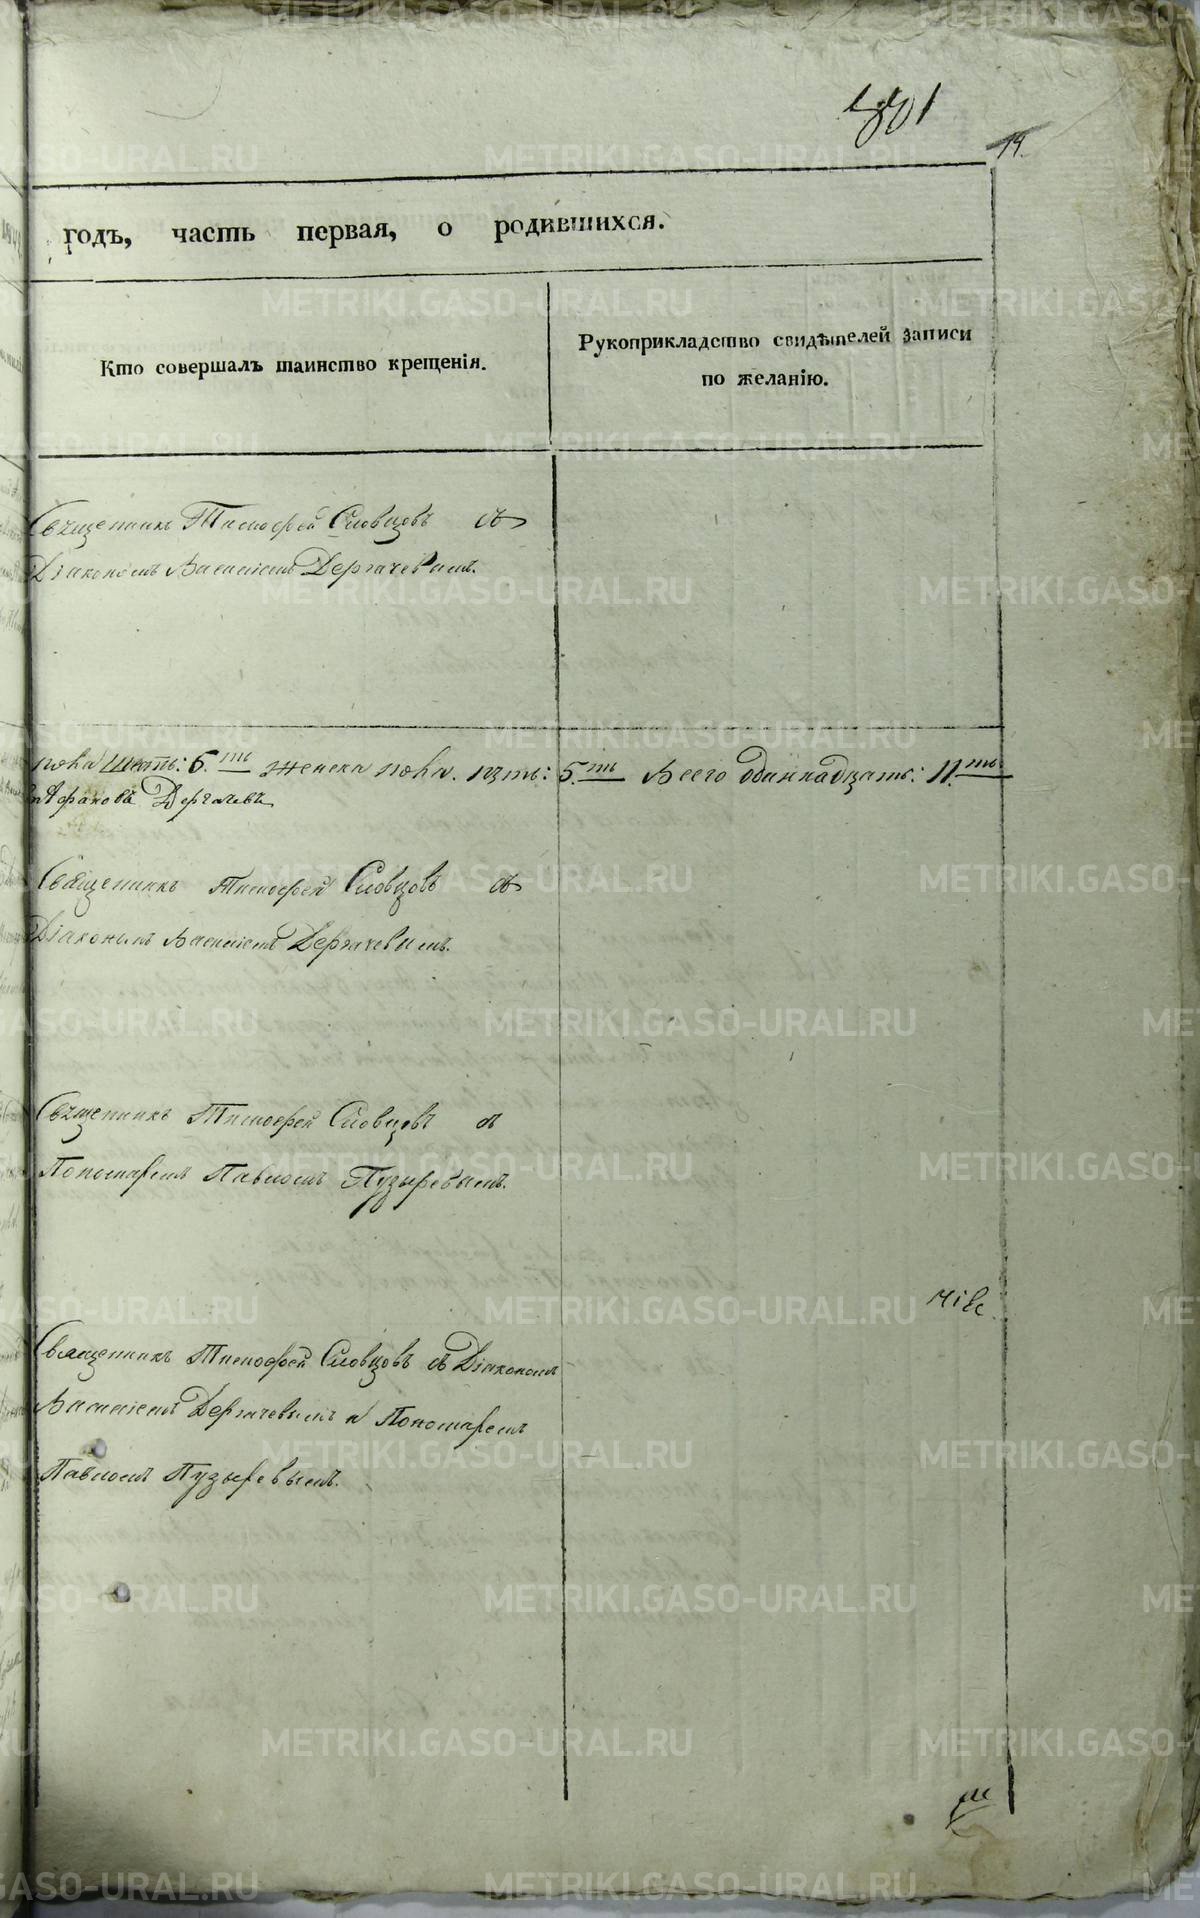 801
14.
годъ, часть первая, о родившихся.
Кто совершалъ таинство крещенія.
Рукоприкладство свидѣтелей записи
по желанію.
Священникъ Тимофей Словцовъ съ
Діакономъ Василіемъ Дергачевымъ.
пола шесть: 6.ть женска пола. пять: 5.ть Всего одиннадцать: 11.ть
Дергачевъ
Священникъ Тимофей Словцовъ съ
Діакономъ Василіемъ Дергачевымъ.
Священникъ Тимофей Словцовъ съ
Пономаремъ Павломъ Пузыревымъ.
Священникъ Тимофей Словцовъ съ Діакономъ
Василіемъ Дергачевымъ и Пономаремъ
Павломъ Пузыревымъ.
METRIKI.GASO-URAL.RU